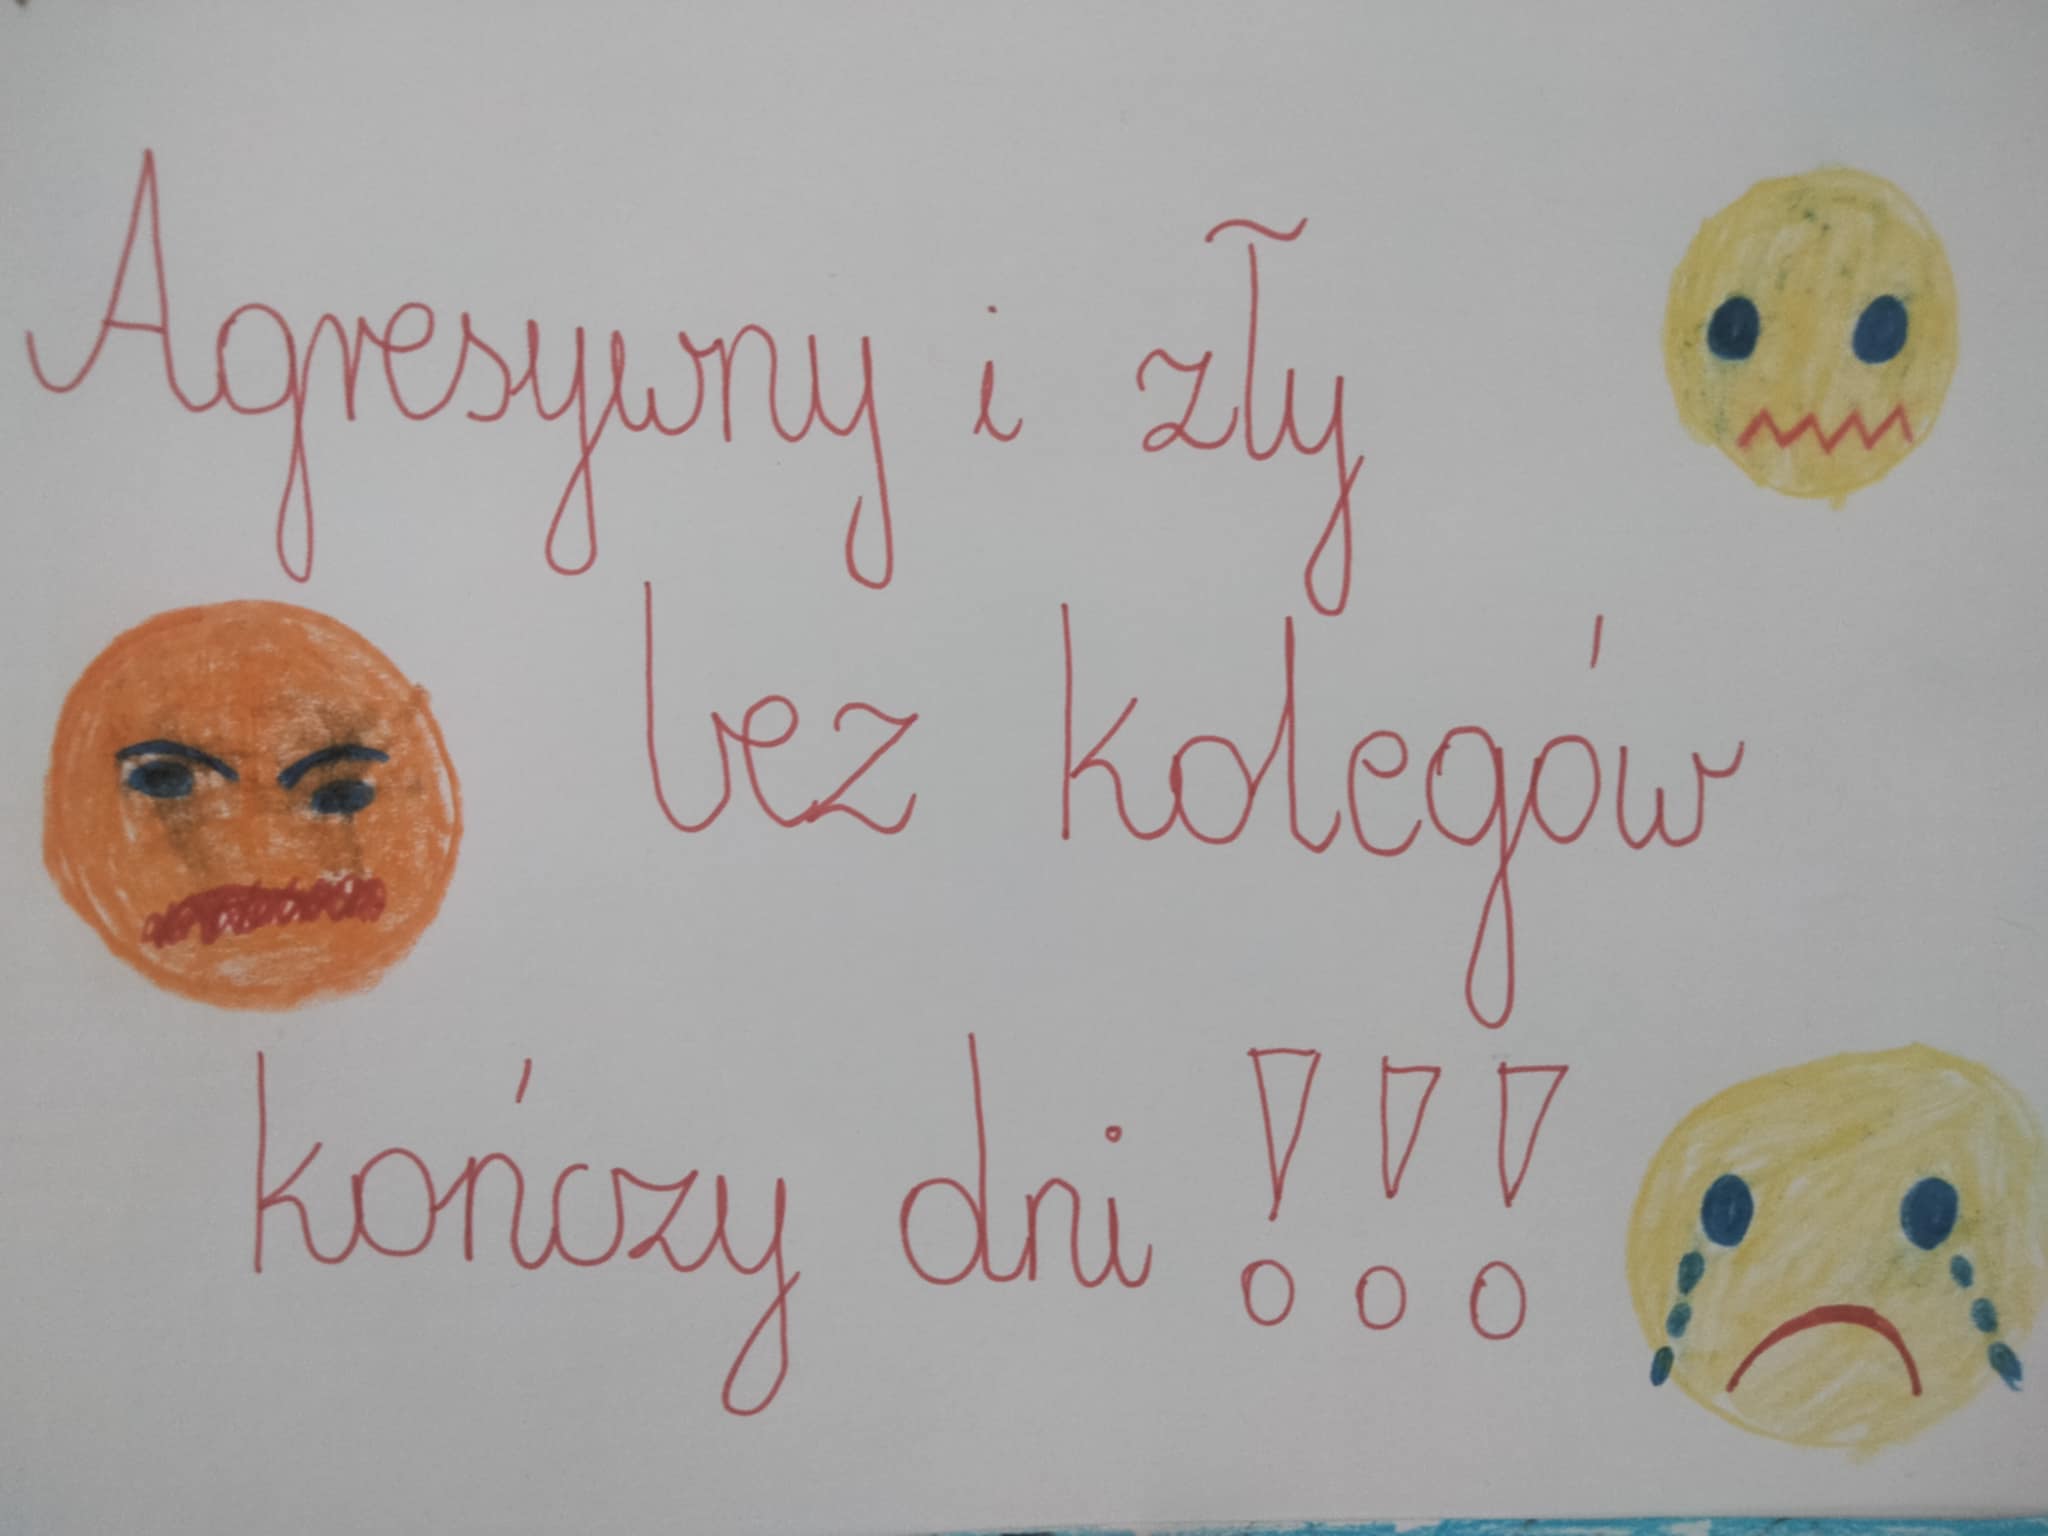 Agresywny i zły
bez kolegów
kończy dni !!!